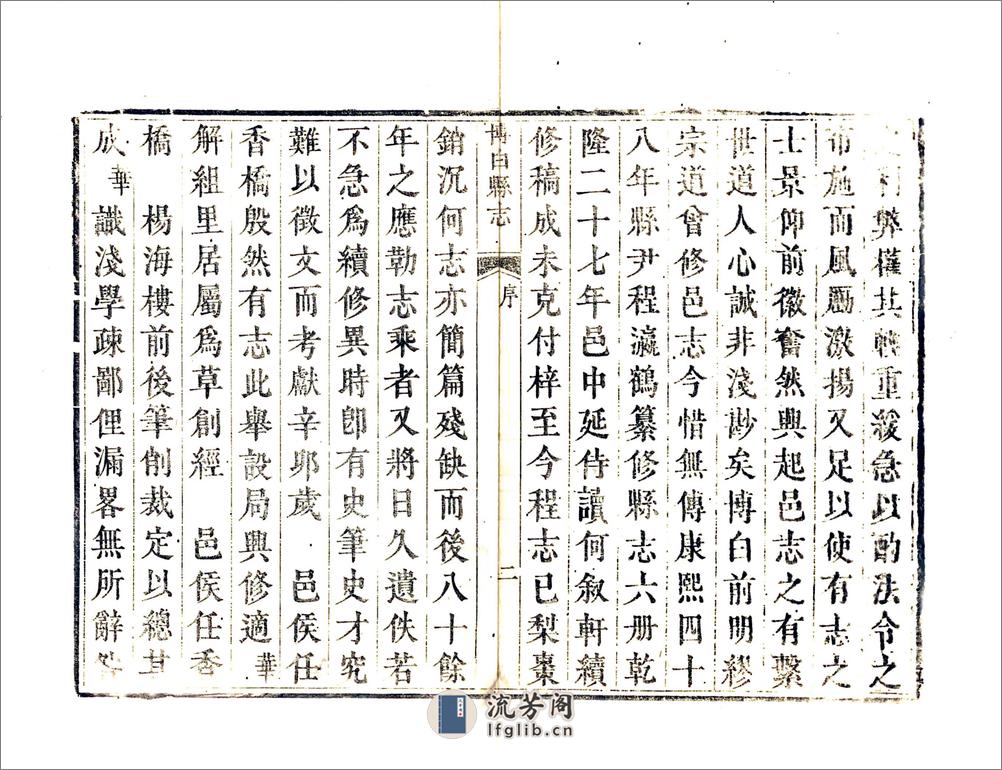 利弊權其輕重緩急以酌法令之
布施而風勵激揚又足以使有志之
士景仰前徽奮然興起邑志之有繫
世道人心誠非淺尠矣博白前明繆
宗道曾修邑志今惜無傳康熙四十
八年縣尹程瀛鶴纂修縣志六册乾
隆二十七年邑中延侍讀何敘軒續
修稿成未克付梓至今程志已梨棗
博白縣志
序
二
銷沉何志亦簡篇殘缺而後八十餘
年之應勒志乘者又將日久遺佚若
不急爲續修異時卽有史筆史才究
難以徵文而考獻辛卯歲 邑侯任
香橋殷然有志此舉設局興修適華
解組里居屬爲草創經 邑侯任香
橋 楊海樓前後筆削裁定以總其
成華 識淺學疎鄙俚漏畧無所辭咎
流芳阁
lfglib.cn